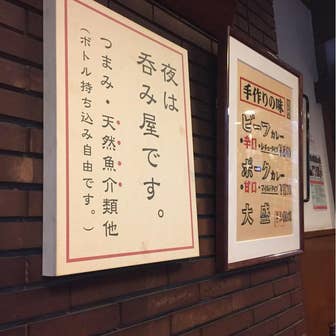 夜は
呑み屋です。
つまみ・天然魚介類他
(ボトル持ち込み自由です。)
手作りの味
ビーフカレー
辛口
ポークカレー
甘口
大盛